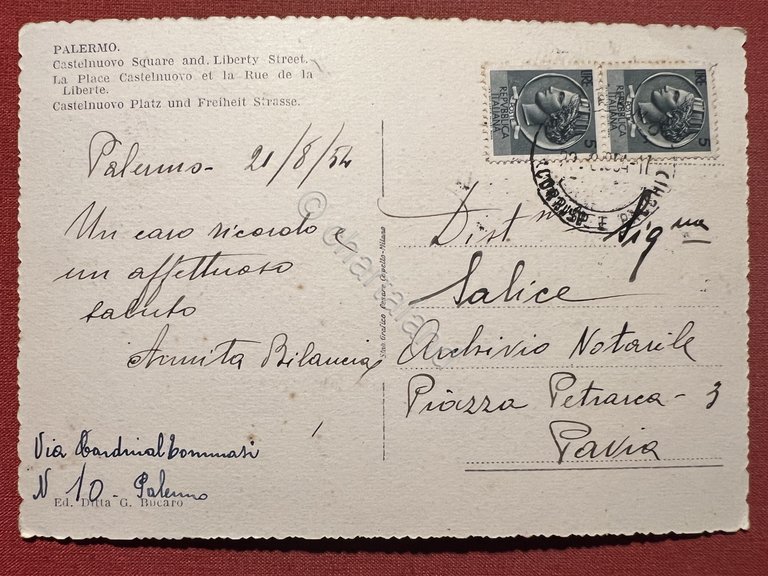 PALERMO.
Castelnuovo Square and. Liberty Street.
La Place Castelnuovo et la Rue de la
Liberte.
Castelnuovo Platz und Freiheit Strasse.
Palermo - 21/8/54
Un caro ricordo e
un affettuoso
saluto
Annita Bilancia
Via Cardinal Tommasi
N 10 - Palermo
Ed. Ditta G. Bucaro
Stab. Grafico Cesare Capello-Milano
REPVBBLICA
ITALIANA
5
REPVBBLICA
ITALIANA
5
Dist. Sig.na
Salice
Archivio Notarile
Piazza Petrarca - 3
Pavia